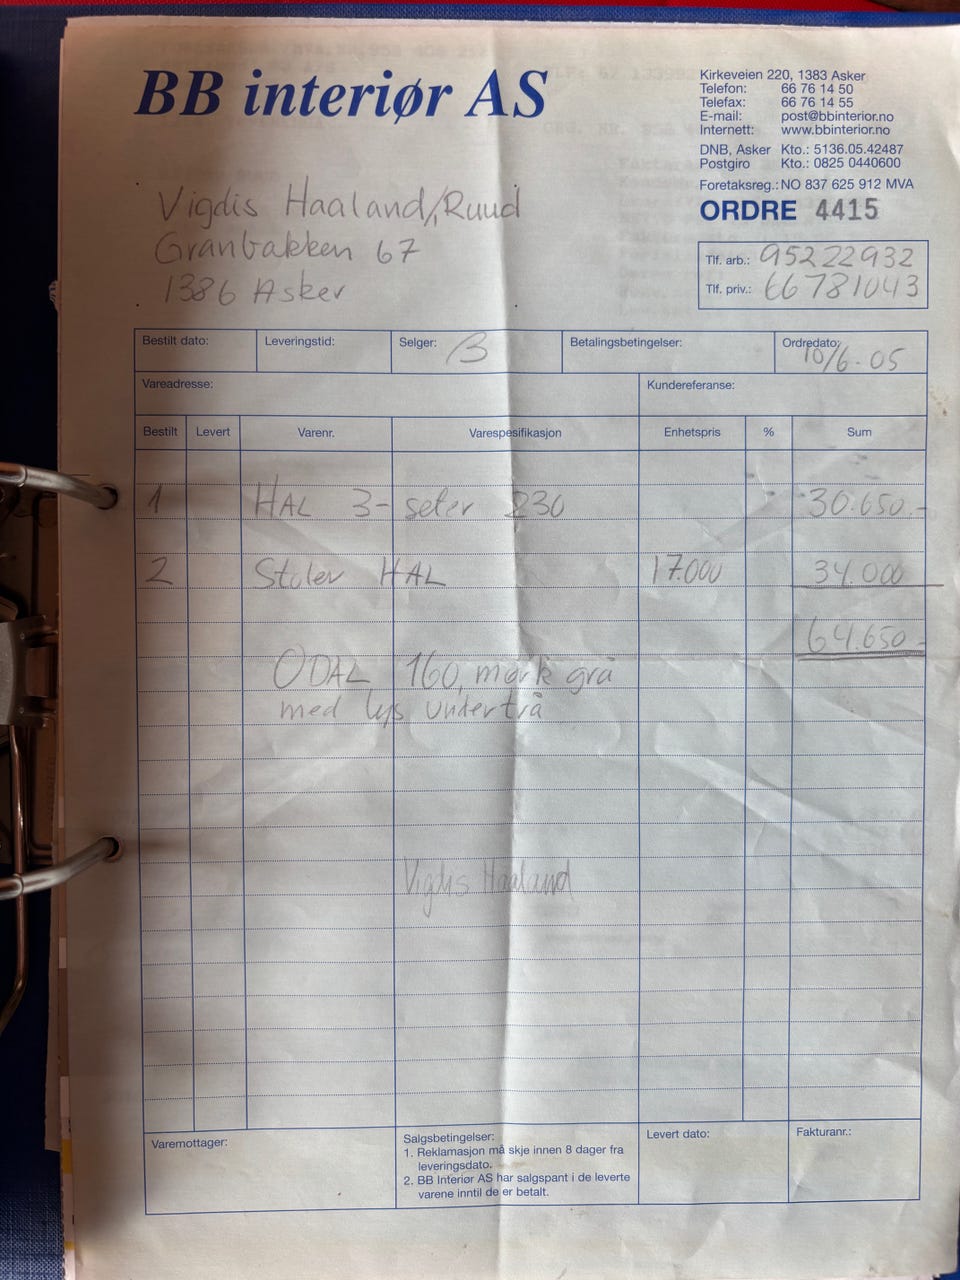 BB interiør AS
Kirkeveien 220, 1383 Asker
Telefon: 66 76 14 50
Telefax: 66 76 14 55
E-mail: post@bbinterior.no
Internett: www.bbinterior.no
DNB, Asker Kto.: 5136.05.42487
Postgiro Kto.: 0825 0440600
Foretaksreg.: NO 837 625 912 MVA
ORDRE 4415
Vigdis Haaland/Ruud
Granbakken 67
1386 Asker
Tlf. arb.: 95222932
Tlf. priv.: 66781043
Bestilt dato: Leveringstid: Selger: B Betalingsbetingelser: Ordredato: 10/6-05
Vareadresse: Kundereferanse:
Bestilt Levert Varenr. Varespesifikasjon Enhetspris % Sum
1 HAL 3-seter 230 30.650.-
2 Stoler HAL 17.000 34.000
64.650.-
ODAL 160, mørk grå
med lys undertrå
Vigdis Haaland
Varemottager:
Salgsbetingelser:
1. Reklamasjon må skje innen 8 dager fra
leveringsdato.
2. BB Interiør AS har salgspant i de leverte
varene inntil de er betalt.
Levert dato:
Fakturanr.: